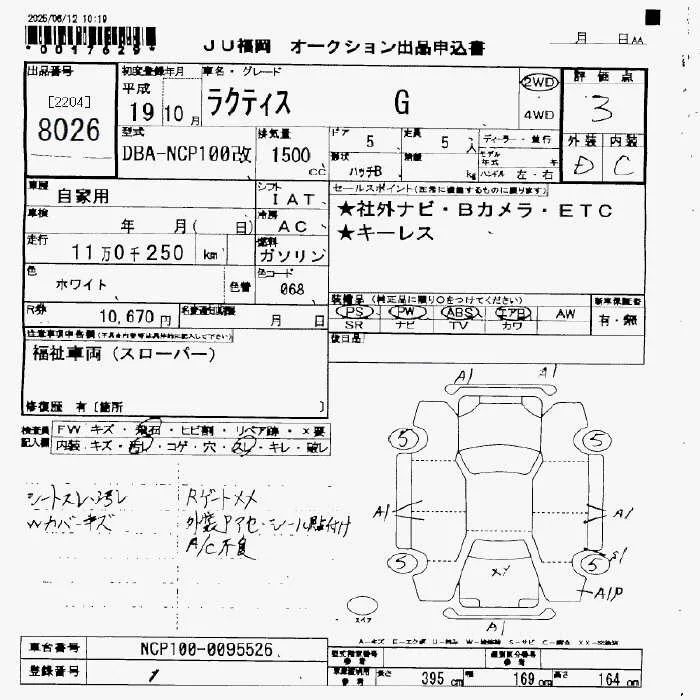 2025/06/12 10:19
*0017629*
JU福岡 オークション出品申込書
月 日 AA
出品番号
[2204]
8026
初度登録年月
平成
19 10 月
車名・グレード
ラクティス G
2WD
4WD
評価点
3
外装 内装
D C
型式
DBA-NCP100改
排気量
1500 cc
ドア 5
定員 5 人
形状 ハッチB
積載 kg
ディーラー・並行
モデル年式 年
ハンドル 左・右
車歴
自家用
シフト
IAT
車検
年 月( 日)
冷房
AC
走行
11万0千250 km
燃料
ガソリン
色
ホワイト
色替
色コード
068
R券
10,670円
名変通知期限
月 日
セールスポイント(正常に機能するものに限ります)
★社外ナビ・Bカメラ・ETC
★キーレス
装備品(純正品に限り○をつけてください)
PS PW ABS エアB AW
SR ナビ TV カワ
新車保証書
有・無
後日品
注意事項申告欄
福祉車両(スローパー)
修復歴 有[箇所 ]
検査員
記入欄
FW キズ・飛石・ヒビ割・リペア跡・X要
内装 キズ・汚レ・コゲ・穴・スレ・キレ・破レ
シートスレ・汚レ
Wカバーキズ
Rゲート××
外装アクセ・シール貼付け
A/C不良
A1 A1
5 5
A1 A1
S1
5 5
A1P
XY
スペア
A1
車台番号
NCP100-0095526
登録番号
型式指定番号
参考
類別区分番号
参考
長さ 395 cm
幅 169 cm
高さ 164 cm